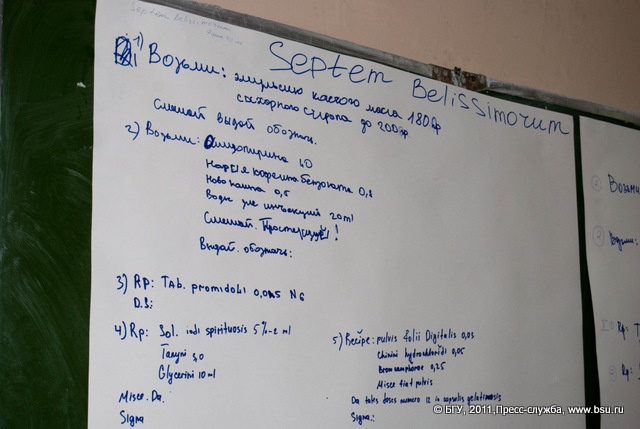 Septem Belissimorum
1) Возьми: эмульсию касторого масла 180,0 гр
сахарного сиропа до 200 гр
Смешай выдай обознач.
2) Возьми: Амидопирина 1.0
Натрия кофеина бензоата 0,8
Новокаина 0,5
Воды для инъекций 20 ml
Смешай. Простерилизуй!
Выдай. обозначь:
3) Rp: Tab. promidoli 0,025 N6
D.S:
4) Rp: Sol. iodi spirituosis 5%-2 ml
Tanini 3,0
Glycerini 10 ml
Misce. Da.
Signa
5) Recipe: pulvis folii Digitalis 0,05
Chinini hydrochloridi 0,05
Bromcamphorae 0,25
Misce fiat pulvis
Da tales doses numero 12 in capsulis gelatinosis
Signa.:
2 Возьми
3 Возьми:
Rp:
© БГУ, 2011,Пресс-служба, www.bsu.ru